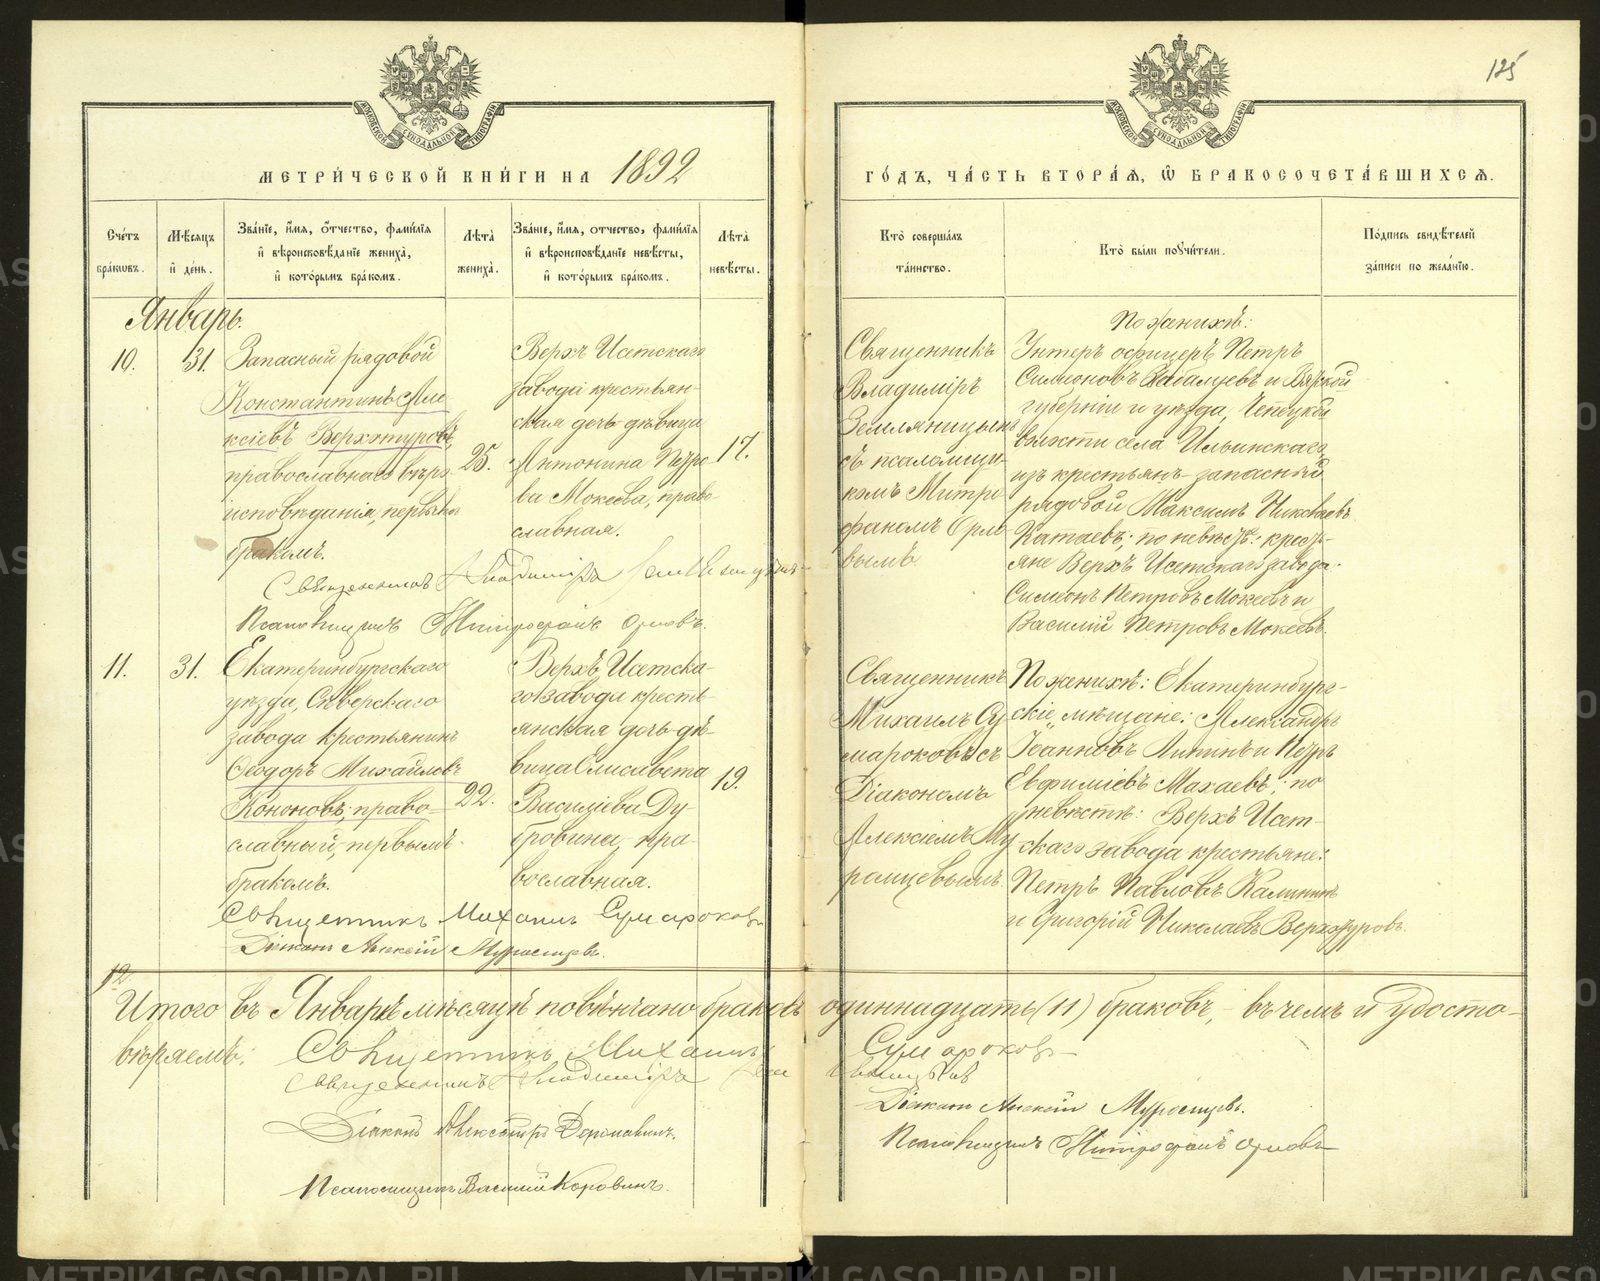 125
МЕТРИ́ЧЕСКОЙ КНИ́ГИ НА 1892
ГО́ДЪ, ЧА́СТЬ ВТОРА́Я, Ѿ БРАКОСОЧЕТА́ВШИХСЯ.
Сче́тъ бра́кѡвъ.
Мѣ́сяцъ и҆ де́нь.
Зва́нїе, и҆́мя, ѻ҆́тчество, фамилїя и҆ вѣроисповѣ́данїе жениха̀, и҆ кото́рымъ бра́комъ.
Лѣта̀ жениха̀.
Зва́нїе, и҆́мя, ѻтчество, фамилїя и҆ вѣроисповѣ́данїе невѣ́сты, и҆ кото́рымъ бра́комъ.
Лѣта̀ невѣ́сты.
Кто̀ соверша́лъ та́инство.
Кто̀ были поꙋчи́тели.
По́дпись свидѣ́телей за́писи по жела́нїю.
Январь.
10.
31.
Запасный рядовой
Константинъ Але
ксіевъ Верхотуровъ,
православнаго вѣро
исповѣданія, первымъ
бракомъ.
25.
Верхъ Исетскаго
завода крестьян-
ская дочь дѣвица
Антонина Петро
ва Мокеева, право
славная.
17.
Священникъ
Владиміръ
Земляницынъ
съ псаломщи-
комъ Митро
фаномъ Орло
вымъ
По женихѣ:
Унтеръ офицеръ Петръ
Симионовъ и Вятской
губерніи и уѣзда,
волости села Ильинскаго
изъ крестьянъ запасный
рядовой Максимъ
Катаевъ; по невѣстѣ: кресть-
яне Верхъ Исетскаго завода:
Симеонъ Петровъ Мокеевъ и
Василий Петровъ Мокеевъ.
Священникъ Владиміръ Земляницынъ
Псаломщикъ Митрофанъ Орловъ.
11.
31.
Екатеринбургскаго
уѣзда, Сѣверскаго
завода крестьянинъ
Ѳеодоръ Михайловъ
Кононовъ, право-
славный, первымъ
бракомъ.
22.
Верхъ Исетска-
го завода кресть-
янская дочь дѣ-
вица Елисавета
Василіева Ду-
бровина, пра-
вославная.
19.
Священникъ
Михаилъ Су
мароковъ съ
Діакономъ
Алексіемъ Му
ромцевымъ
По женихѣ: Екатеринбург-
скіе мѣщане: Александръ
Іоанновъ и Петръ
Евфиміевъ Махаевъ; по
невѣстѣ: Верхъ Исет-
скаго завода крестьяне:
Петръ Павловъ Калининъ
и Григорій Николаевъ Верхотуровъ.
Священникъ Михаилъ Сумароковъ
Діаконъ Алексій Муромцевъ.
12
Итого въ Январѣ мѣсяцѣ повѣнчано браковъ одиннадцать (11) браковъ, въ чемъ и удосто-
вѣряемъ:
Священникъ Михаилъ Сумароковъ
Священникъ Владиміръ Земляницынъ
Діаконъ Алексій Муромцевъ.
Діаконъ Александръ
Псаломщикъ Митрофанъ Орловъ
Псаломщикъ Василій Коровинъ.
METRIKI.GASO-URAL.RU